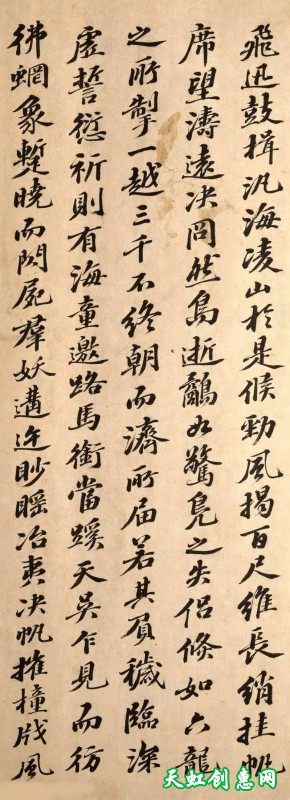 飛迅鼓楫汎海凌山於是候勁風揭百尺維長綃挂帆
席望濤遠决冏然鳥逝鷸如驚鳧之失侶倏如六龍
之所掣一越三千不終朝而濟所届若其負穢臨深
虛誓愆祈則有海童邀路馬銜當蹊天吳乍見而彷
彿蝄象蹔曉而閃屍羣妖遘迕眇䁘冶夷决帆摧橦戕風
天虹创惠网